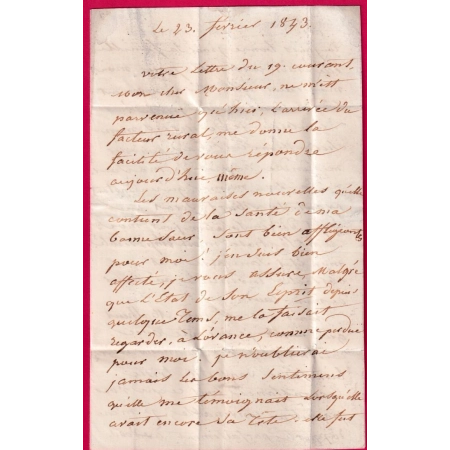 le 23. février 1843.
votre lettre du 19. courant,
mon cher Monsieur, ne m'est
parvenue qu'hier, L'arrivée du
facteur rural, me donne la
facilité de vous répondre
aujourd'hui même.
Les mauvaises nouvelles qu'elle
contient de la santé de ma
bonne Sœur sont bien affligeantes
pour moi! j'en suis bien
affecté, je vous assure, Malgré
que L'Etat de son Esprit depuis
quelque Tems, me la faisait
regarder, a L'avance, comme perdue
pour moi. je n'oublierai
jamais les bons sentimens
qu'elle me témoignait lorsqu'elle
avait encore sa Tête. Ne fut